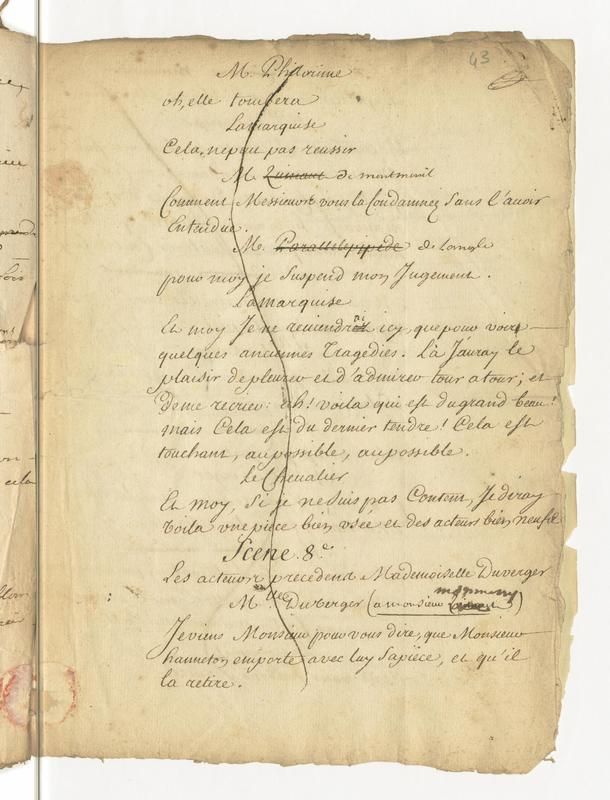 43
M. Philorime
oh, elle tombera
Lamarquise
Cela, nepeut pas reussir
M. de montmenil
Comment Messieurs vous la Condamnez Sans l'avoir
Entendue.
M. Parallelepipede de langle
pour moy je Suspend mon Jugement.
Lamarquise
Et moy Je ne reviendrai icy, que pour voir
quelques anciennes Tragedies. Là J'auray le
plaisir de pleurer et d'admirer tour a tour; et
De me recrier: ah! voila qui est du grand beau!
mais Cela est du dernier tendre! Cela est
touchant, au possible, au possible.
Le Chevalier
Et moy, Si je ne Suis pas Content, Je diray
Voila une piece bien usée et des acteurs bien neufs
Scene. 8.e
Les acteurs precedens Mademoiselle Duverger
M.lle Duverger (a monsieur )
Je viens Monsieur pour vous dire, que Monsieur
hanneton emporte avec luy Sa piece, et qu'il
la retire.